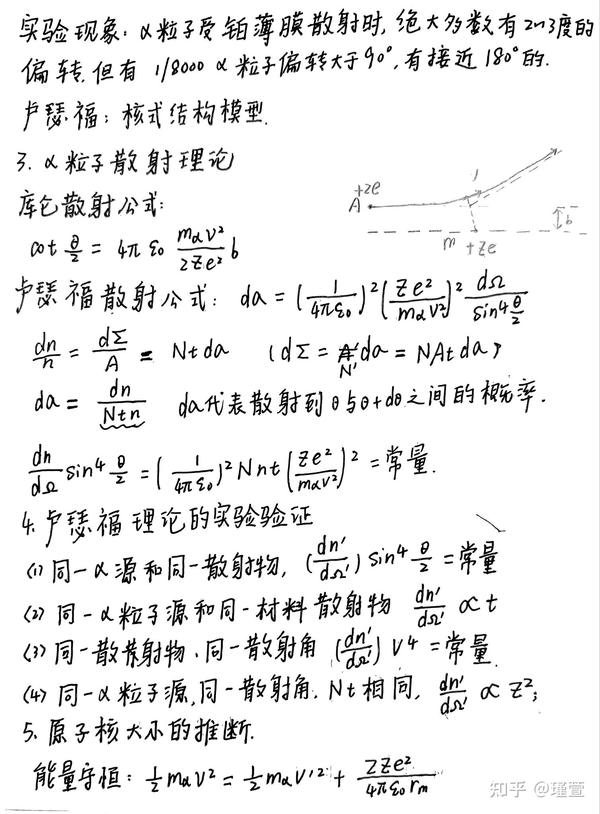 实验现象: α粒子受铂薄膜散射时, 绝大多数有2~3度的
偏转. 但有 1/8000 α粒子偏转大于90°, 有接近180°的.
卢瑟福: 核式结构模型.
3. α粒子散射理论
库仑散射公式:
cot θ/2 = 4πε₀ mαv²/2Ze² b
+2e
A
b
m
+Ze
卢瑟福散射公式: da = (1/4πε₀)² (Ze²/mαv²)² dΩ/sin⁴ θ/2
dn/n = dΣ/A = Ntda (dΣ = N'da = NAtda)
da = dn/Ntn da代表散射到θ与θ+dθ之间的概率.
dn/dΩ sin⁴ θ/2 = (1/4πε₀)² Nnt (Ze²/mαv²)² = 常量.
4. 卢瑟福理论的实验验证
(1) 同一α源和同一散射物, (dn'/dΩ') sin⁴ θ/2 = 常量
(2) 同一α粒子源和同一材料散射物 dn'/dΩ' ∝ t
(3) 同一散射物、同一散射角 (dn'/dΩ') v⁴ = 常量.
(4) 同一α粒子源, 同一散射角. Nt相同, dn'/dΩ' ∝ Z²;
5. 原子核大小的推断.
能量守恒: ½mαv² = ½mαv'² + 2Ze²/4πε₀rm
知乎 @瑾萱